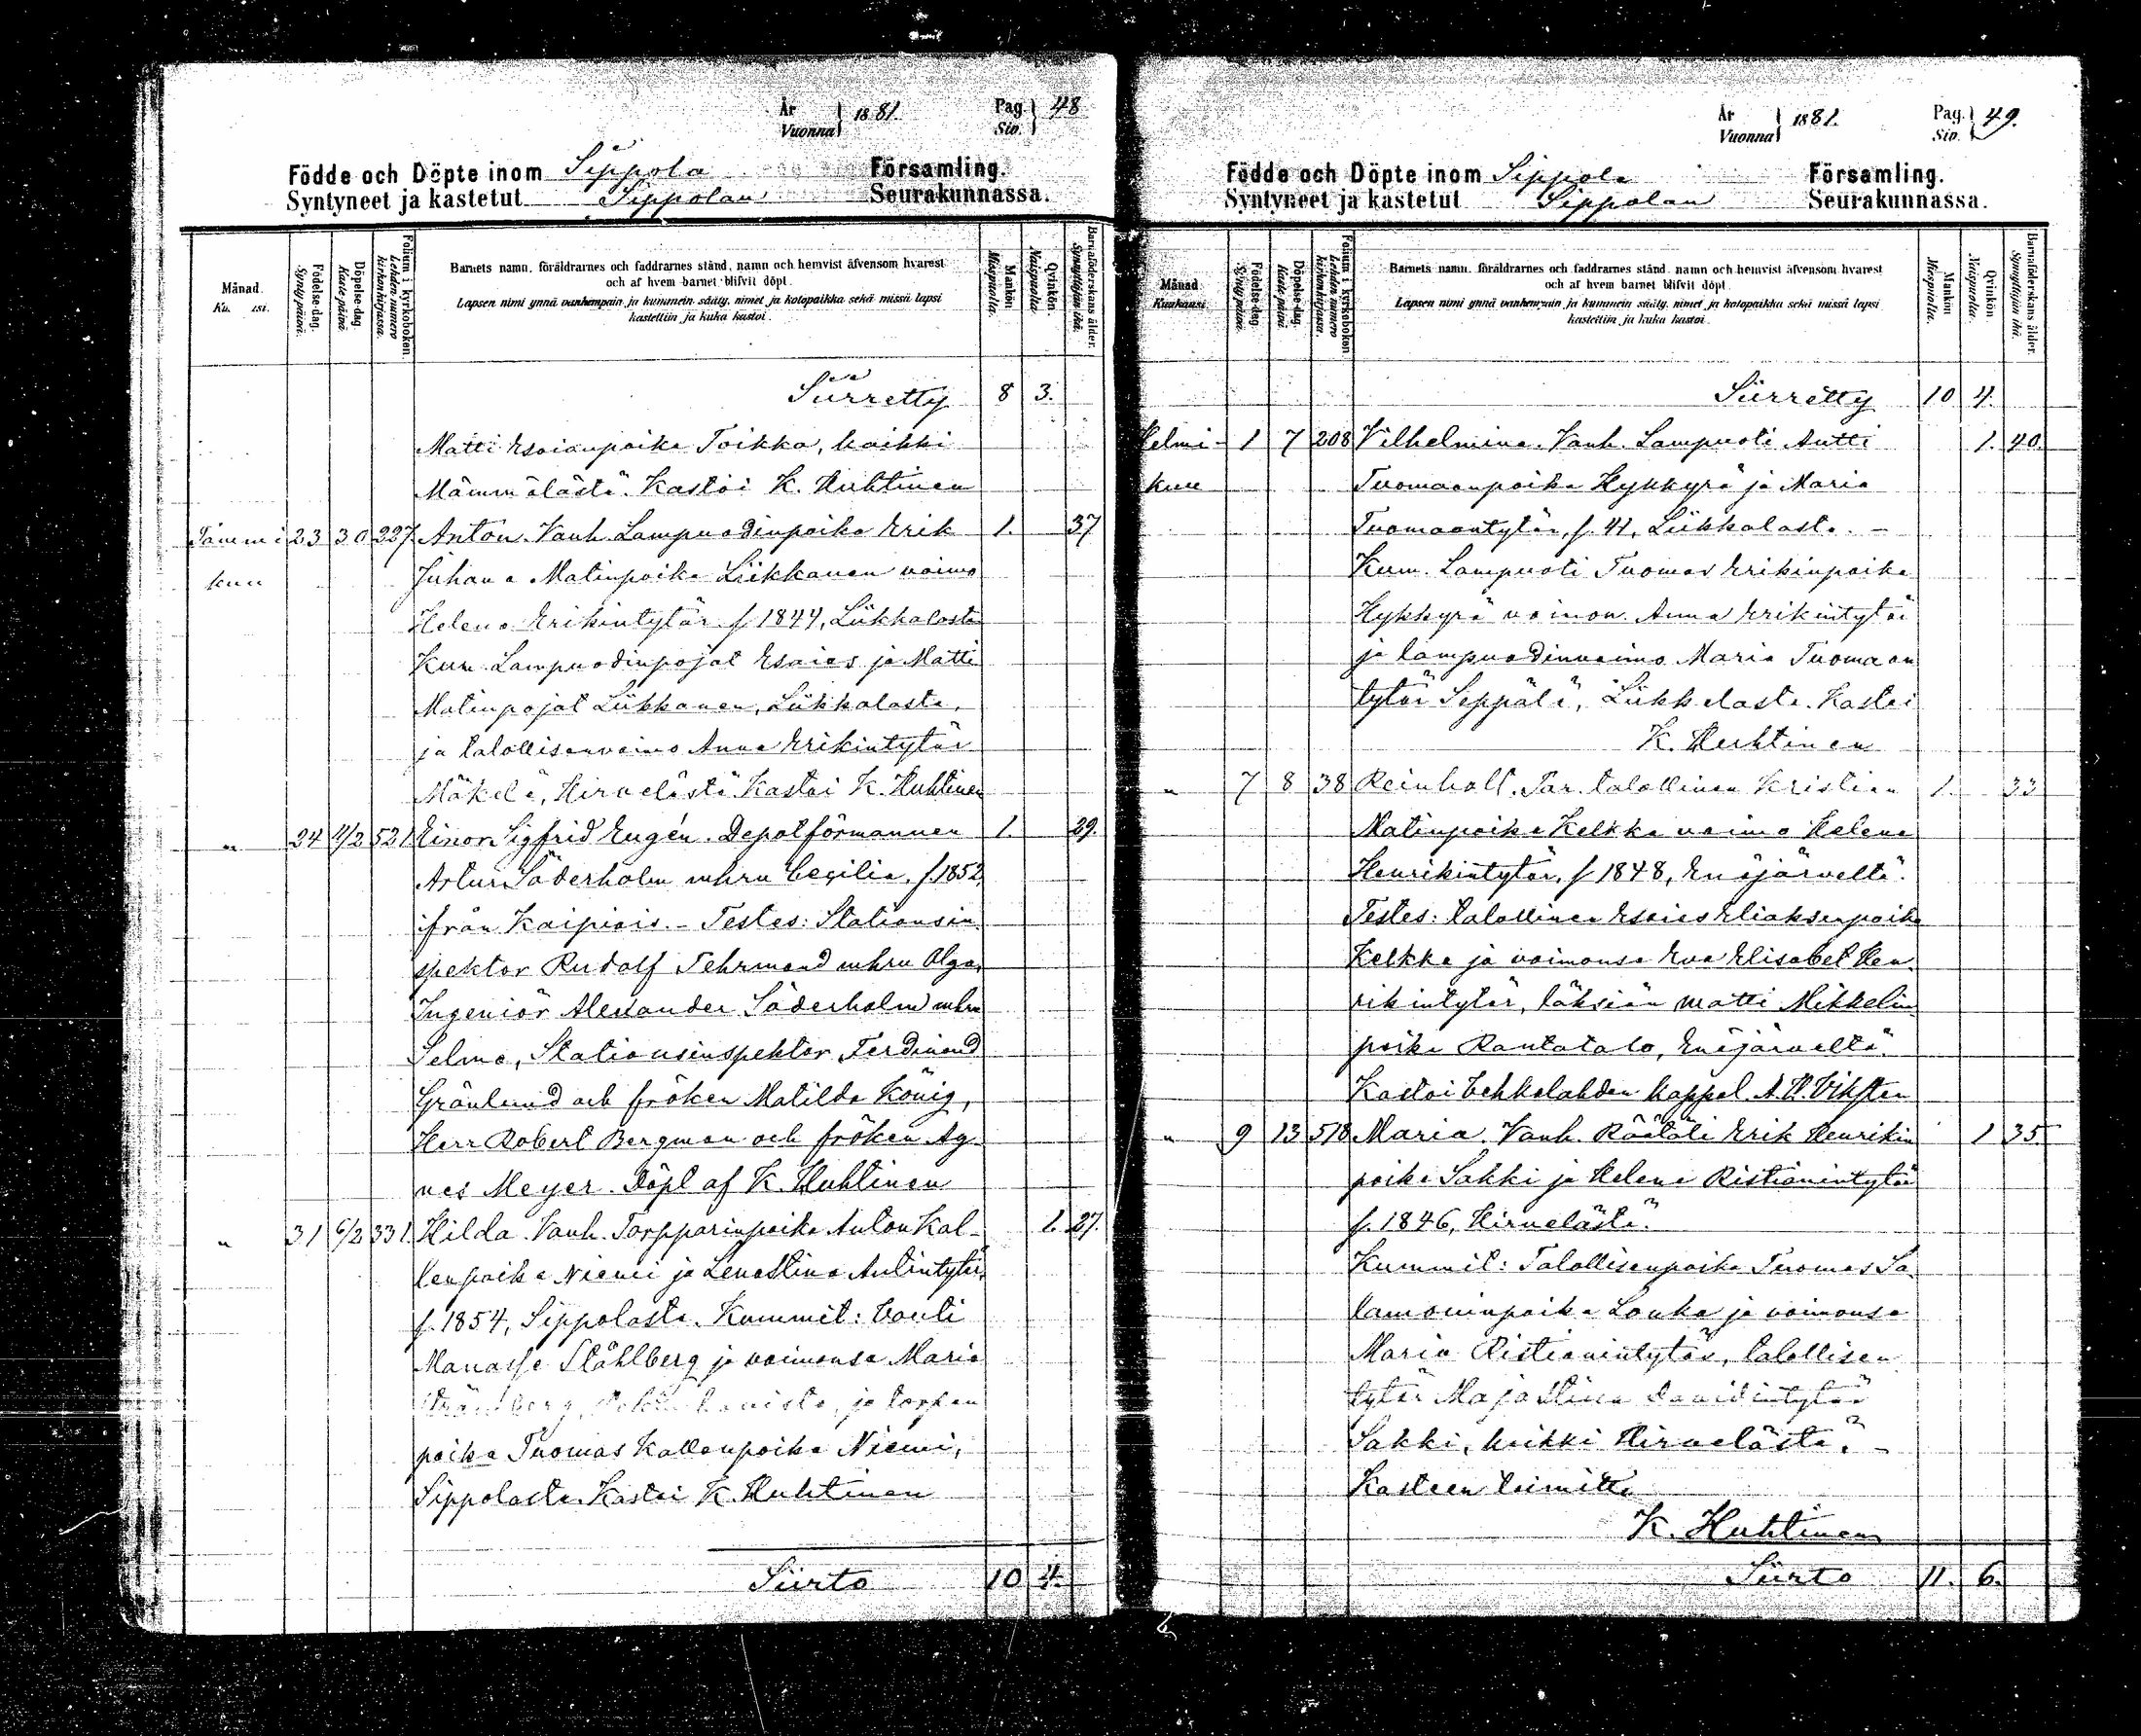 År Vuonna } 1881. Pag. Siv. } 48
Födde och Döpte inom Sippola Församling.
Syntyneet ja kastetut Sippolan Seurakunnassa.
Månad.
Födelse-dag. Synty päivä.
Döpelse-dag. Kaste päivä.
Folium i kyrkoboken. Lehden numero kirkonkirjassa.
Barnets namn, föräldrarnes och faddrarnes stånd, namn och hemvist äfvensom hvarest
och af hvem barnet blifvit döpt.
Lapsen nimi ynnä vanhempain ja kummein sääty, nimet ja kotopaikka sekä missä lapsi
kastettiin ja kuka kastoi.
Mankön. Miespuolta.
Qvinkön. Naispuolta.
Barnaföderskans ålder. Synnyttäjän ikä.
Siirretty 8 3.
Matti Esaianpoika Toikka, kaikki
Mämmälästä. Kastoi K. Huhtinen
Tammi 23 30 227. Anton. Vanh. Lampuodinpoika Erik 1. 37
kuu Juhana Matinpoika Liikkanen vaimo
Helena Erikintytär f 1844, Liikkalasta
Kum. Lampuodinpojat Esaias ja Matti
Matinpojat Liikkanen, Liikkalasta,
ja talollisenvaimo Anna Erikintytär
Mäkelä, Hirvelästä Kastoi K. Huhtinen
" 24 4/2 521 Einar Sigfrid Eugén. Depotförmannen 1. 29.
Artur Söderholm uhru Cecilia, f. 1852,
ifrån Kaipiais. - Testes: Stationsin
spektor Rudolf Fehrmand uhru Olga,
Ingeniör Alexander Söderholm uhru
Selma, Stationsinspektor Ferdinand
Grönlund och fröken Matilda König,
Herr Robert Bergman och fröken Ag-
nes Meyer. Döpt af K. Huhtinen
" 31 6/2 331. Hilda. Vanh. Torpparinpoika Anton Kal- 1. 27.
lenpoika Niemi ja Lenastina Antintytär,
f. 1854, Sippolasta. Kummit: Vouti
Manasse Ståhlberg ja vaimonsa Maria
ja torpan
poika Tuomas Kallenpoika Niemi,
Sippolasta. Kastoi K. Huhtinen
Siirto 10 4.
År Vuonna } 1881. Pag. Siv. } 49.
Födde och Döpte inom Sippola Församling.
Syntyneet ja kastetut Sippolan Seurakunnassa.
Månad Kuukausi
Födelse-dag. Synty päivä.
Döpelse-dag. Kaste päivä.
Folium i kyrkoboken. Lehden numero kirkonkirjassa.
Barnets namn, föräldrarnes och faddrarnes stånd, namn och hemvist äfvensom hvarest
och af hvem barnet blifvit döpt.
Lapsen nimi ynnä vanhempain ja kummein sääty, nimet ja kotopaikka sekä missä lapsi
kastettiin ja kuka kastoi.
Mankön Miespuolta.
Qvinkön Naispuolta.
Barnaföderskans ålder. Synnyttäjän ikä.
Siirretty 10 4.
Helmi- 1 7 208 Vilhelmina. Vanh. Lampuoti Antti 1. 40.
kuu Tuomaanpoika Hykkyrä ja Maria
Tuomaantytär, f. 41, Liikkalasta. -
Kum. Lampuoti Tuomas Erikinpoika
Hykkyrä vaimon. Anna Erikintytär
ja lampuodinvaimo Maria Tuomaan
tytär Seppälä, Liikkalasta. Kastoi
K. Huhtinen
" 7 8 38 Reinholt. Par. talollinen Kristian 1. 33
Matinpoika Kelkka vaimo Helena
Henrikintytär, f 1848, Enäjärveltä.
Testes: talollinen Esaias Eliaksenpoika
Kelkka ja vaimonsa Eva Elisabet Hen-
rikintytär, läksiän Matti Mikkelin
poika Rantatalo, Enäjärveltä.
Kastoi Vehkalahden kappal. A. W. Viksten
" 9 13 518 Maria. Vanh. Räätäli Erik Henrikin 1 35.
poika Sakki ja Helena Ristianintytär
f. 1846, Hirvelästä.
Kummit: Talollisenpoika Tuomas Sa-
lamoninpoika Louka ja vaimonsa
Maria Ristianintytär, talollisen
tytär Maja Stina Davidintytär
Sakki, kaikki Hirvelästä. -
Kasteen toimitti
K. Huhtinen
Siirto 11. 6.